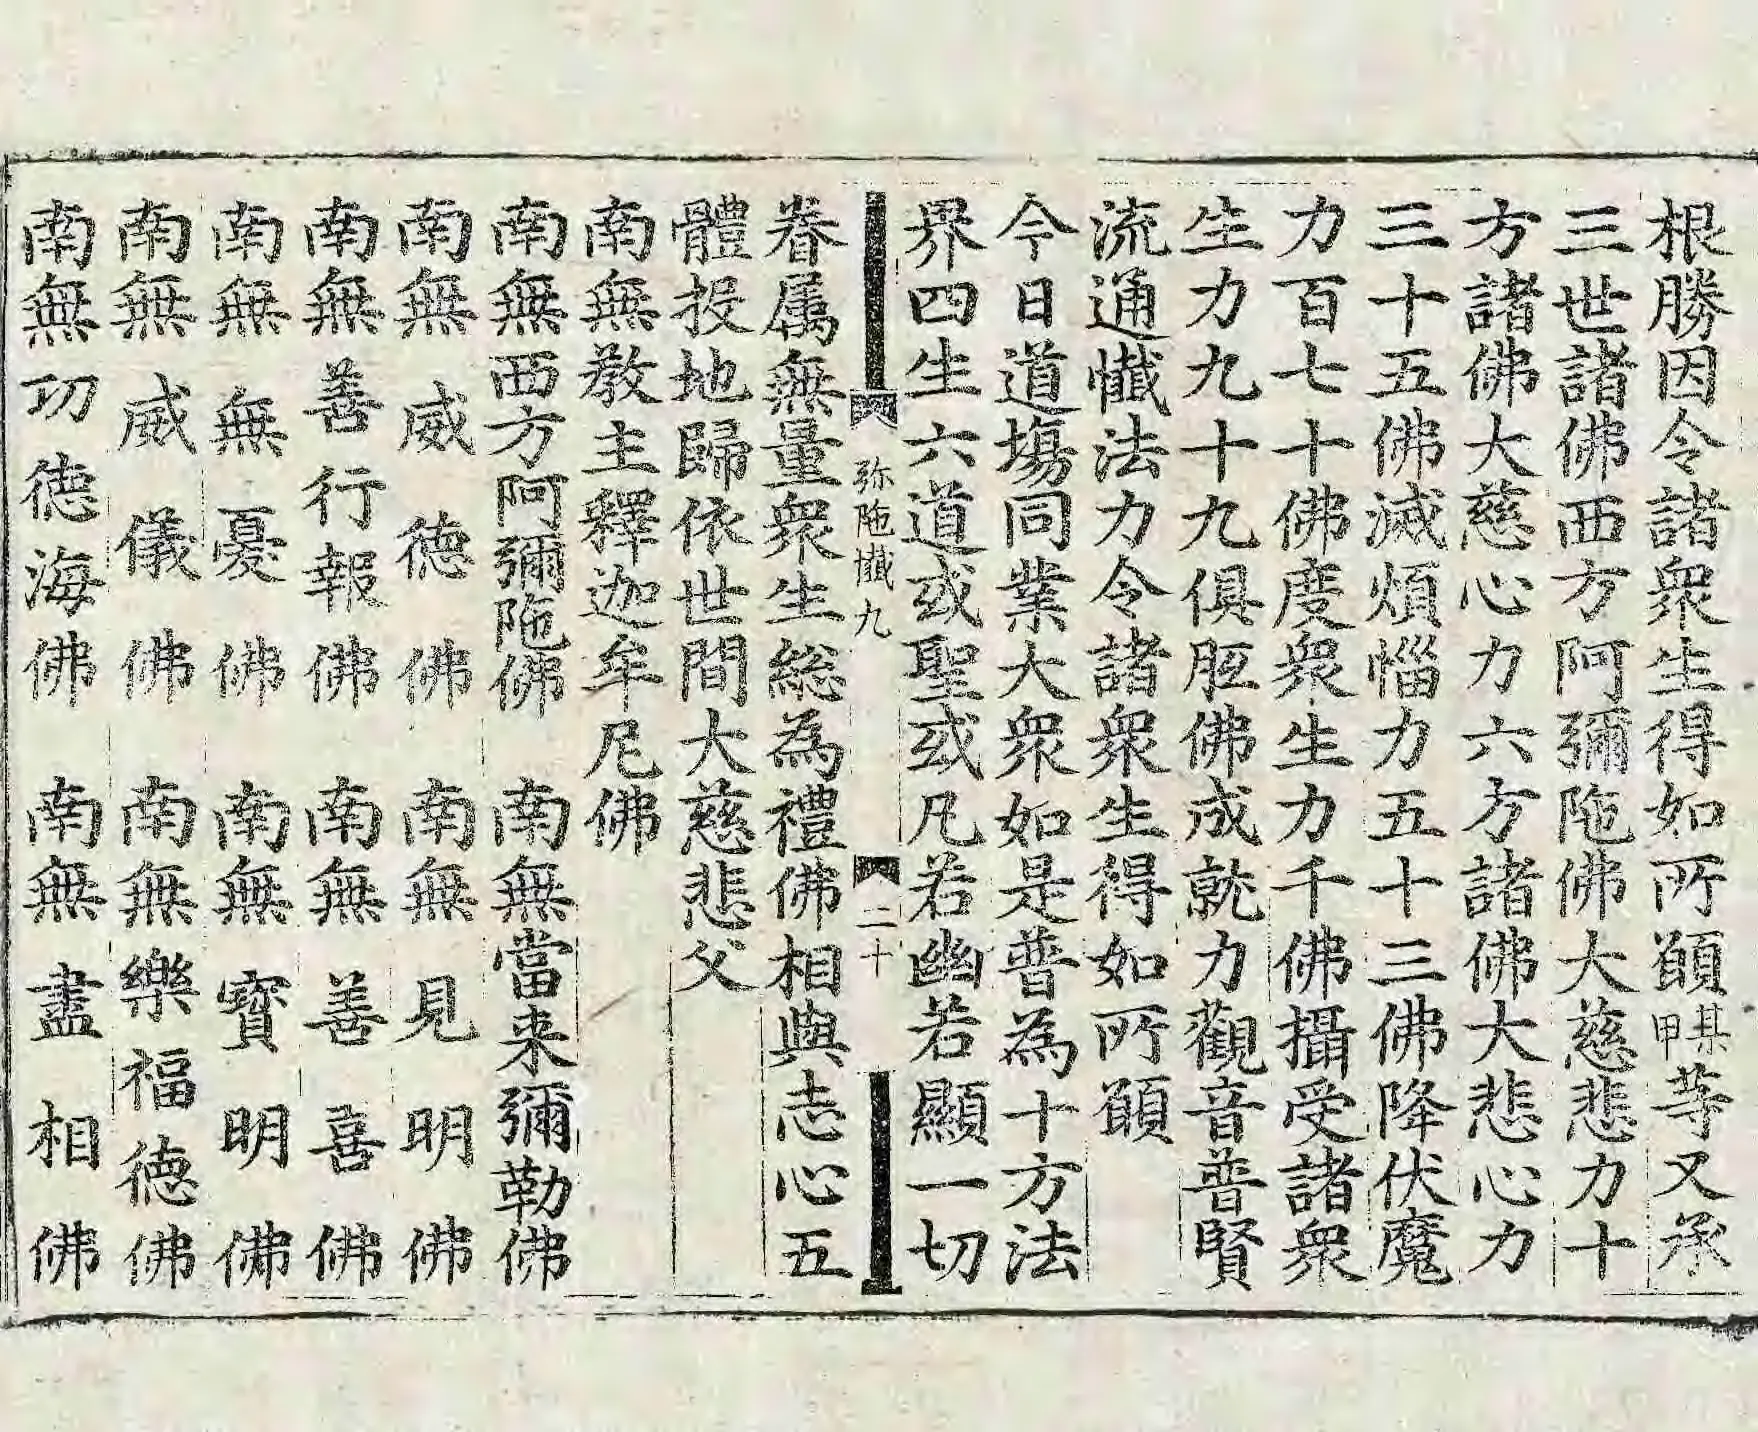 根勝因令諸衆生得如所願某甲等又承
三世諸佛西方阿彌陁佛大慈悲力十
方諸佛大慈心力六方諸佛大悲心力
三十五佛滅煩惱力五十三佛降伏魔
力百七十佛度衆生力千佛攝受諸衆
生力九十九俱胝佛成就力觀音普賢
流通懺法力令諸衆生得如所願
今日道場同業大衆如是普為十方法
界四生六道或聖或凡若幽若顯一切
弥陁懺九 二十
眷属無量衆生総為禮佛相與志心五
體投地歸依世間大慈悲父
南無教主釋迦牟尼佛
南無西方阿彌陁佛 南無當来彌勒佛
南無威德佛 南無見明佛
南無善行報佛 南無善喜佛
南無無憂佛 南無寳明佛
南無威儀佛 南無樂福德佛
南無功德海佛 南無盡相佛